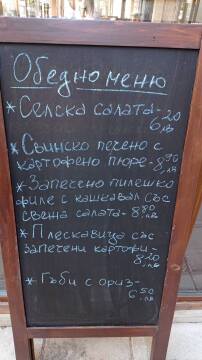 Обедно меню
* Селска салата - 6 20 лв
* Свинско печено с
картофено пюре - 8,90 лв
* Запечено пилешко
филе с кашкавал със
свежа салата - 8,80 лв
* Плескавица със
запечени картофи -
8 20 лв
* Гъби с ориз -
6 50 лв